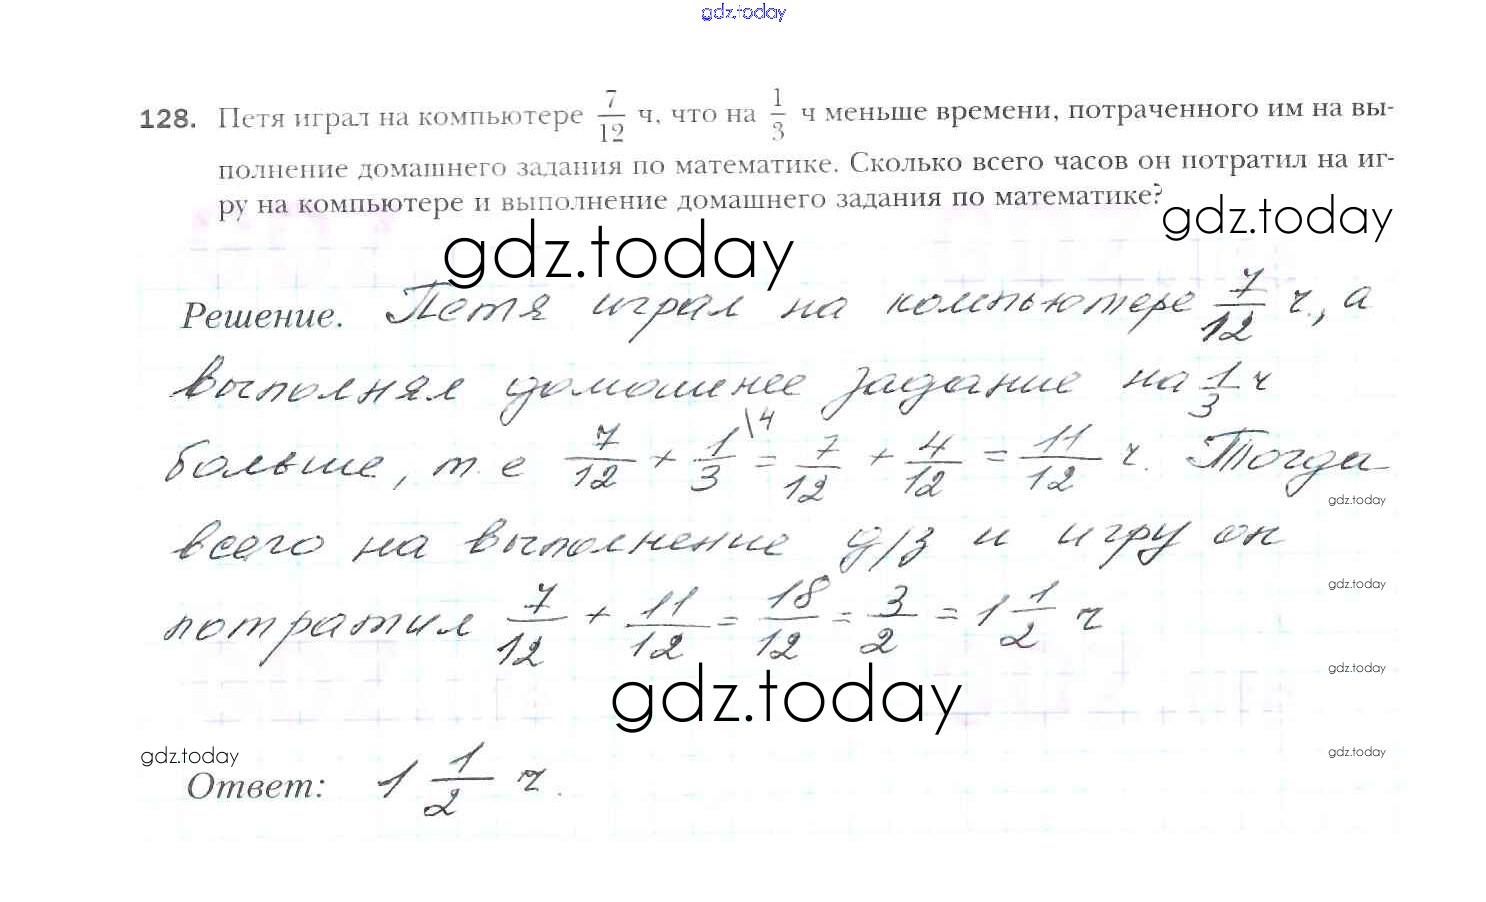 gdz.today
128. Петя играл на компьютере 7/12 ч, что на 1/3 ч меньше времени, потраченного им на вы-
полнение домашнего задания по математике. Сколько всего часов он потратил на иг-
ру на компьютере и выполнение домашнего задания по математике?
gdz.today
gdz.today
Решение. Петя играл на компьютере 7/12 ч., а
выполнял домашнее задание на 1/3 ч
больше, т. е 7/12 + 1/3 \4 = 7/12 + 4/12 = 11/12 ч. Тогда
gdz.today
всего на выполнение д/з и игру он
gdz.today
потратил 7/12 + 11/12 = 18/12 = 3/2 = 1 1/2 ч
gdz.today
gdz.today
gdz.today
gdz.today
Ответ: 1 1/2 ч.